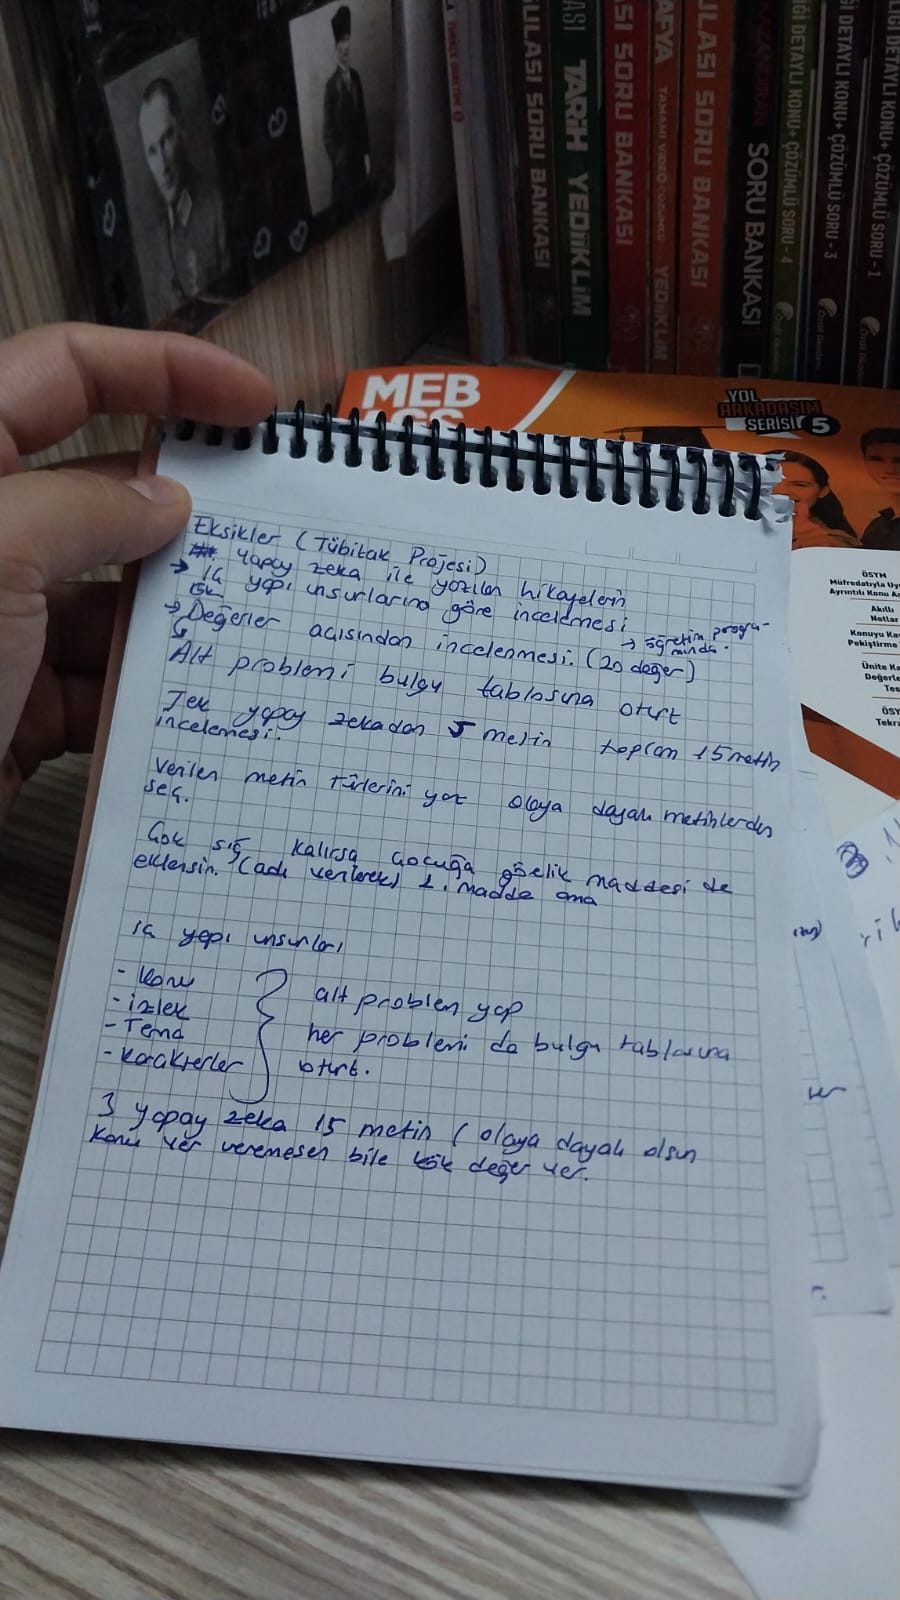 GULASI SORU BANKASI
TARİH YEDİİKLİM
ASI SORU BANKASI
AFYA
TAMAMI VIDEO ÇÖZÜMLÜ
YEDİİKLİM
ULASI SORU BANKASI
KAZANDIRAN
SORU BANKASI
İĞİ DETAYLI KONU+ ÇÖZÜMLÜ SORU - 4
Ğİ DETAYLI KONU+ ÇÖZÜMLÜ SORU - 3
LİĞİ DETAYLI KONU+ ÇÖZÜMLÜ SORU - 1
MEB
YOL
ARKADAŞIM
SERİSİ 5
ÖSYM
Müfredatıyla Uy
Ayrıntılı Konu An
Akıllı
Notlar
Konuyu Ka
Pekiştirme
Ünite Ka
Değerle
Tes
ÖSY
Tekra
Eksikler (Tübitak Projesi)
Yapay zeka ile yazılan hikayelerin
→ İç yapı unsurlarına göre incelemesi
→ öğretim progra-
mında.
→ Değerler açısından incelenmesi. (20 değer)
Alt problemi bulgu tablosuna oturt
Tek yapay zekadan 5 metin toplam 15 metin
incelemesi.
Verilen metin türlerini yaz olaya dayalı metinlerden
seç.
Çok sığ kalırsa çocuğa görelik maddesi de
eklensin. (adı verilerek) 2. madde ama
iç yapı unsurları
- Konu
- izlek
- Tema
- Karakterler
alt problem yap
her problemi de bulgu tablosuna
oturt.
3 yapay zeka 15 metin (olaya dayalı olsun
Konu ver veremesen bile kök değer ver.